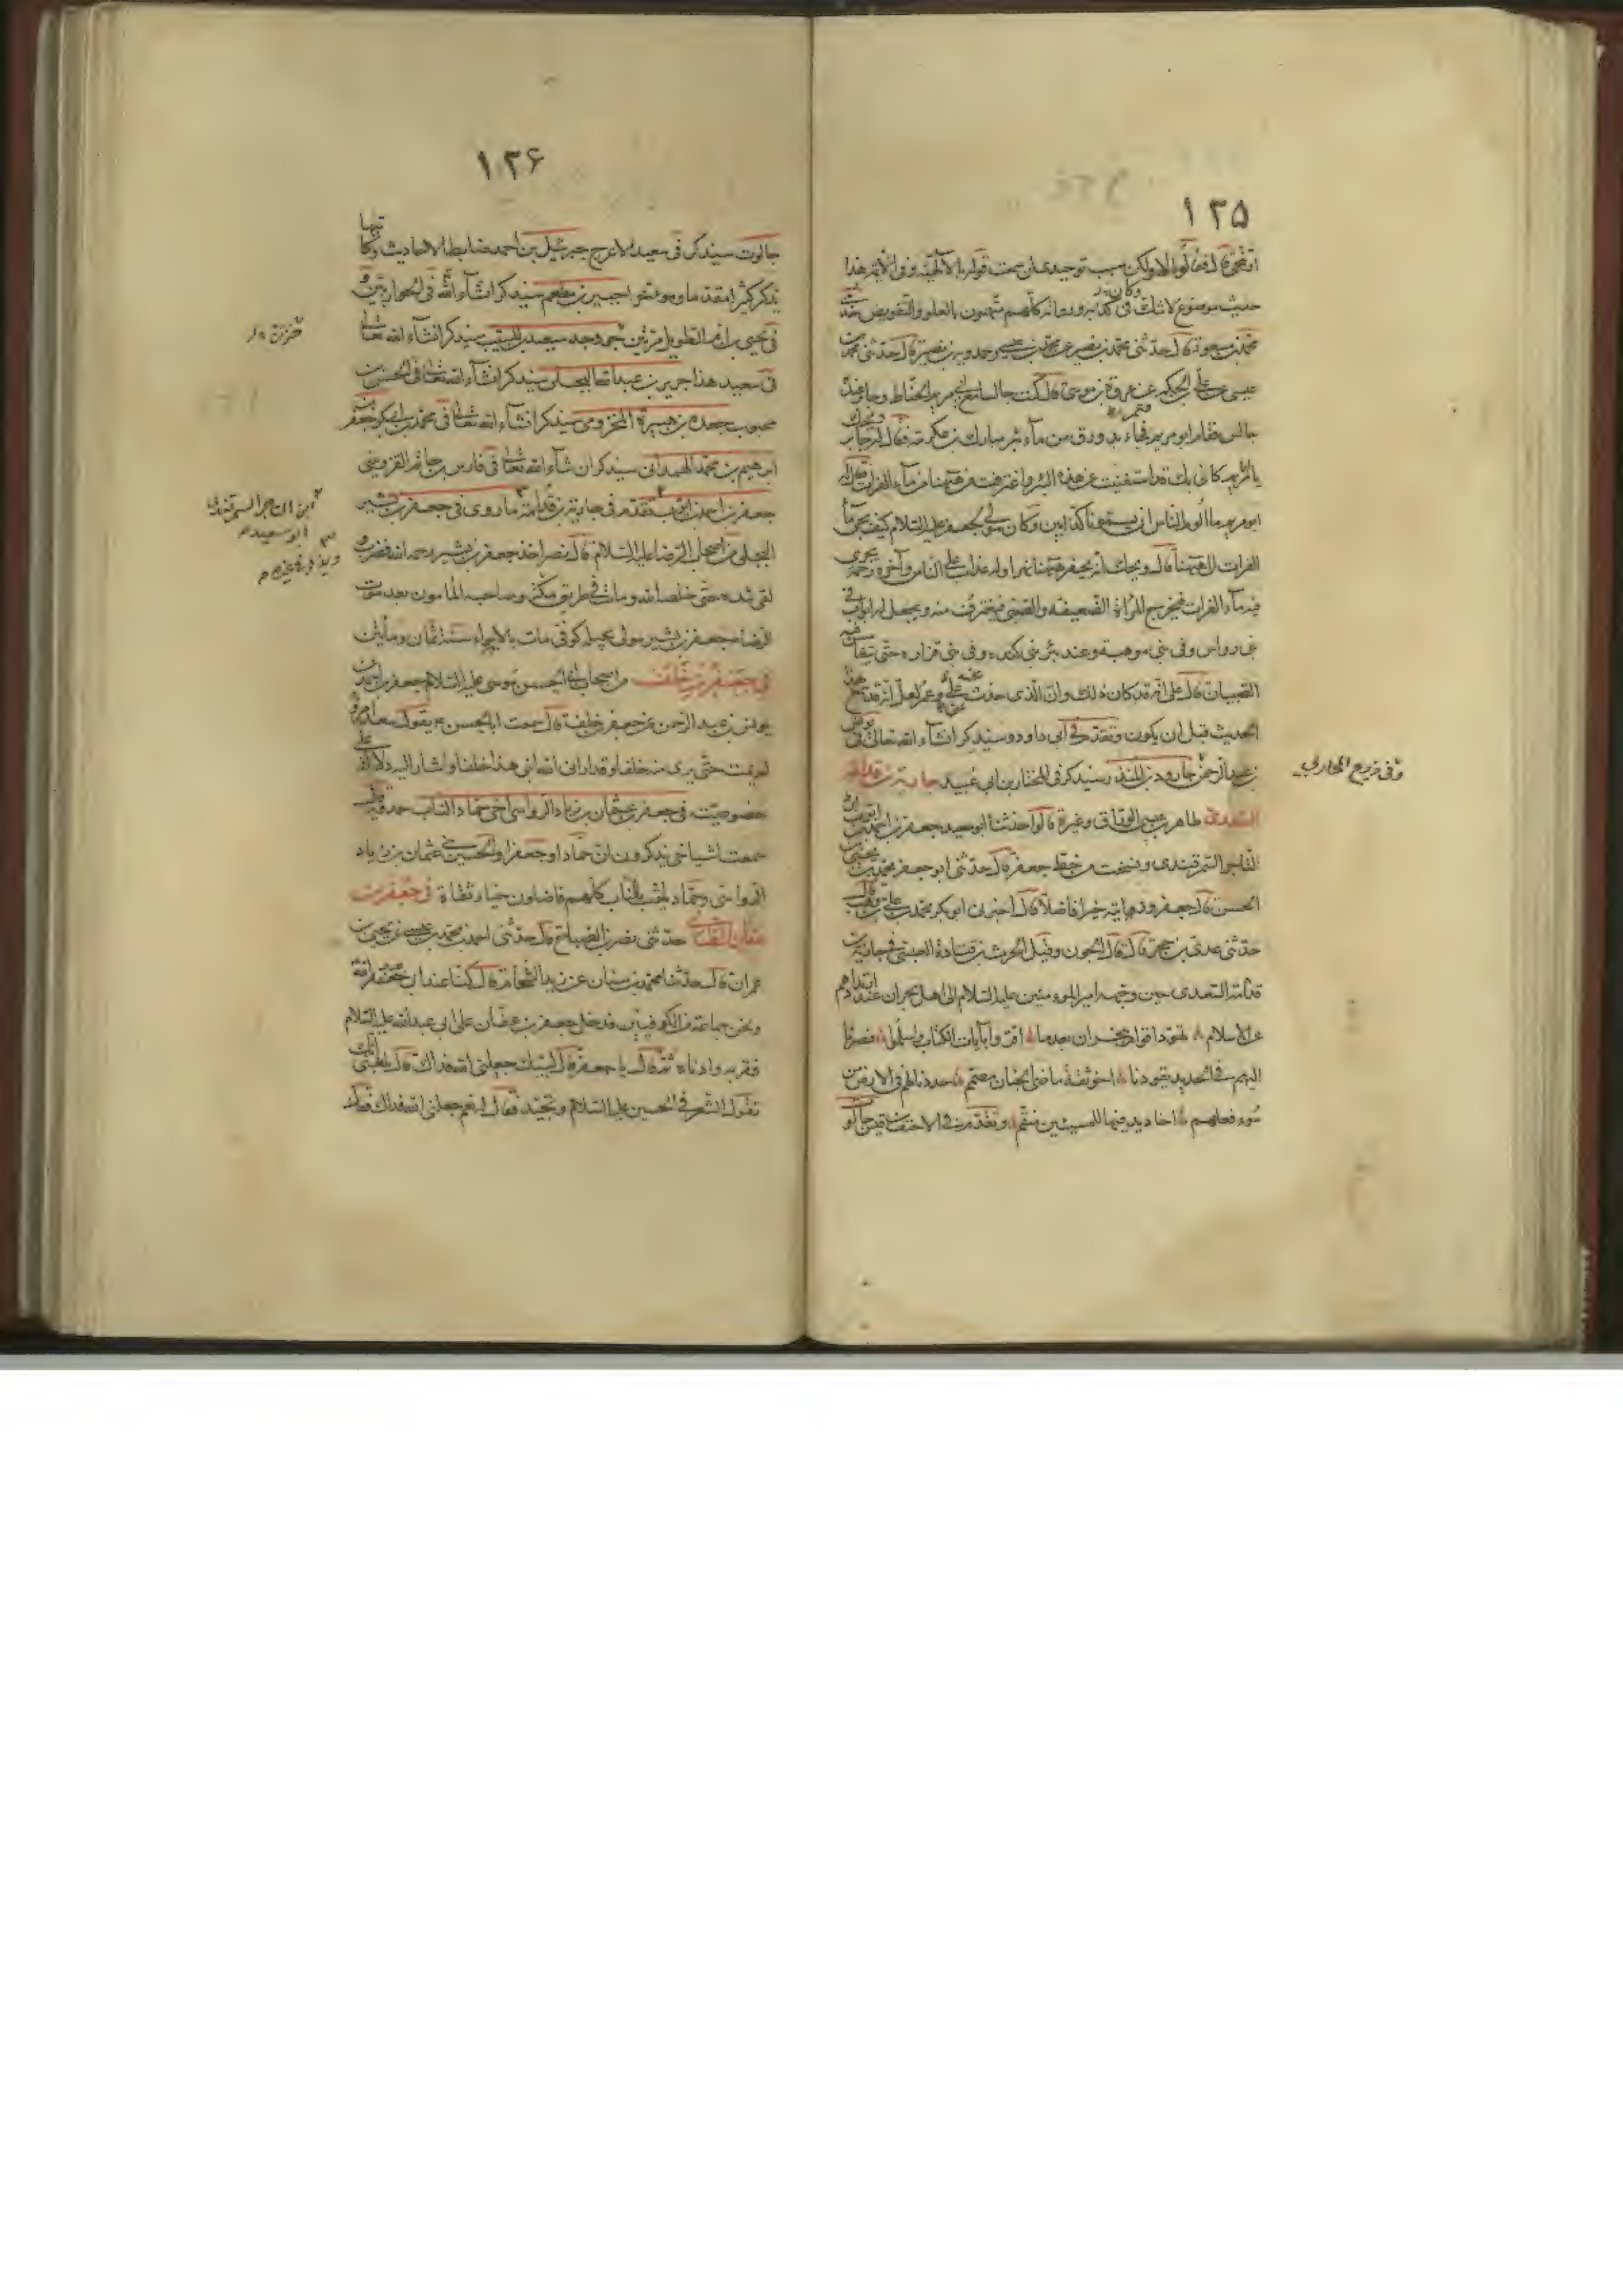 ١٣٥
حديث موضوع لا شك في كذبه ورواته كلهم متهمون بالغلو والتفويض
محمد بن مسعود قال حدثني محمد بن نصير عن محمد بن عيسى وحمدويه بن نصير قال حدثني محمد بن
عيسى عن علي بن الحكم عن عروة بن موسى قال كنت جالسا مع ابي مريم الحناط وجابر عنده
جالس فقام ابو مريم فجاء بدورق من ماء بئر مبارك بن عكرمة فقال له جابر ويحك
يا ابا مريم كاني بك قد استغنيت عن هذه البئر واغترفت من هيهنا من ماء الفرات فقال له
ابو مريم ما الوم الناس ان يسمونا كذابين وكان مولى لجعفر عليه السلام كيف يجيء ماء
الفرات الى هيهنا قال ويحك انه يحفر هيهنا نهر اوله عذاب على الناس وآخره رحمة يجرى
فيه ماء الفرات فتخرج المرأة الضعيفة والصبي فيغترف منه ويجعل له ابواب في
بني رواس وفي بني موهبة وعند بئر بني كندة وفي بني فزارة حتى تتغامس فيه
الصبيان قال علي انه قد كان ذلك وان الذي حدث علي
الحديث قبل ان يكون وتقدم في ابي داود وسيذكر ان شاء الله تعالى في يونس
بن عبد الرحمن جارود بن المنذر سيذكر في المختار بن ابي عبيد جارية بن قدامة
السعدي طاهر بن عيسى الوراق وغيره قالوا حدثنا ابو سعيد جعفر بن احمد بن ايوب
التاجر السمرقندي ونسخت من خط جعفر قال حدثني ابو جعفر محمد بن يحيى بن
الحسن قال جعفر ورايته خيرا فاضلا قال اخبرني ابو بكر محمد بن علي بن وهب قال
حدثني عدي بن حجر قال قال الجون وقيل الحرث بن قتادة العبسي في جارية بن
قدامة السعدي حين وجهه امير المومنين عليه السلام الى اهل نجران عند ارتدادهم
عن الاسلام
اليهم في الحديد يقودنا اخو ثقة ماضي الجنان مصمم مددنا لهم في الارض من
سوء فعلهم اخاديد فيها للمسيئين منقم وتقدم في الاحنف بن قيس جالو
١٣۶
جالوت سيذكر في سعيد الاعرج جبرئيل بن احمد ضابط الاحاديث
يذكر كثيرا منه ما وهو جبير بن مطعم سيذكر ان شاء الله في الحواريين و
في يحيى بن ام الطويل مرتين جد سعيد بن المسيب سيذكر ان شاء الله تعالى
في سعيد هذا جرير بن عبد الله البجلي سيذكر ان شاء الله تعالى في الحسن بن
محبوب جعدة بن هبيرة المخزومي سيذكر ان شاء الله تعالى في محمد بن ابي بكر جعفر بن
ابراهيم بن محمد الهمداني سيذكر ان شاء الله تعالى في فارس بن حاتم القزويني
جعفر بن احمد بن ايوب تقدم في جارية بن قدامة ما روي في جعفر بن بشير
البجلي من اصحاب الرضا عليه السلام قال نصر اخذ جعفر بن بشير رحمه الله فضرب و
لقي شدة حتى خلصه الله ومات في طريق مكة وصاحبه المامون بعد موت
الرضا جعفر بن بشير مولى بجيلة كوفي مات بالابواء سنة ثمان ومأتين
في جعفر بن خلف من اصحاب ابي الحسن موسى عليه السلام جعفر بن احمد عن
يونس بن عبد الرحمن عن جعفر بن خلف قال سمعت ابا الحسن ع يقول سعد امرؤ
لم يمت حتى يرى منه خلفا وقد اراني الله ابني هذا خلفا واشار اليه دلالة على
خصوصيته في جعفر بن عثمان بن زياد الرواسي اخي حماد الناب حمدويه
سمعت اشياخي يذكرون ان حمادا وجعفرا والحسين بني عثمان بن زياد
الرواسي وحماد يلقب بالناب كلهم فاضلون خيار ثقاة في جعفر بن
عفان الطائي حدثني نصر بن الصباح قال حدثني احمد بن محمد بن عيسى عن يحيى بن
عمران قال حدثنا محمد بن سنان عن زيد الشحام قال كنا عند ابي عبد الله
ونحن جماعة من الكوفيين فدخل جعفر بن عفان على ابي عبد الله عليه السلام
فقربه وادناه ثم قال يا جعفر قال لبيك جعلني الله فداك قال بلغني انك
تقول الشعر في الحسين عليه السلام وتجيد فقال له نعم جعلني الله فداك فقال